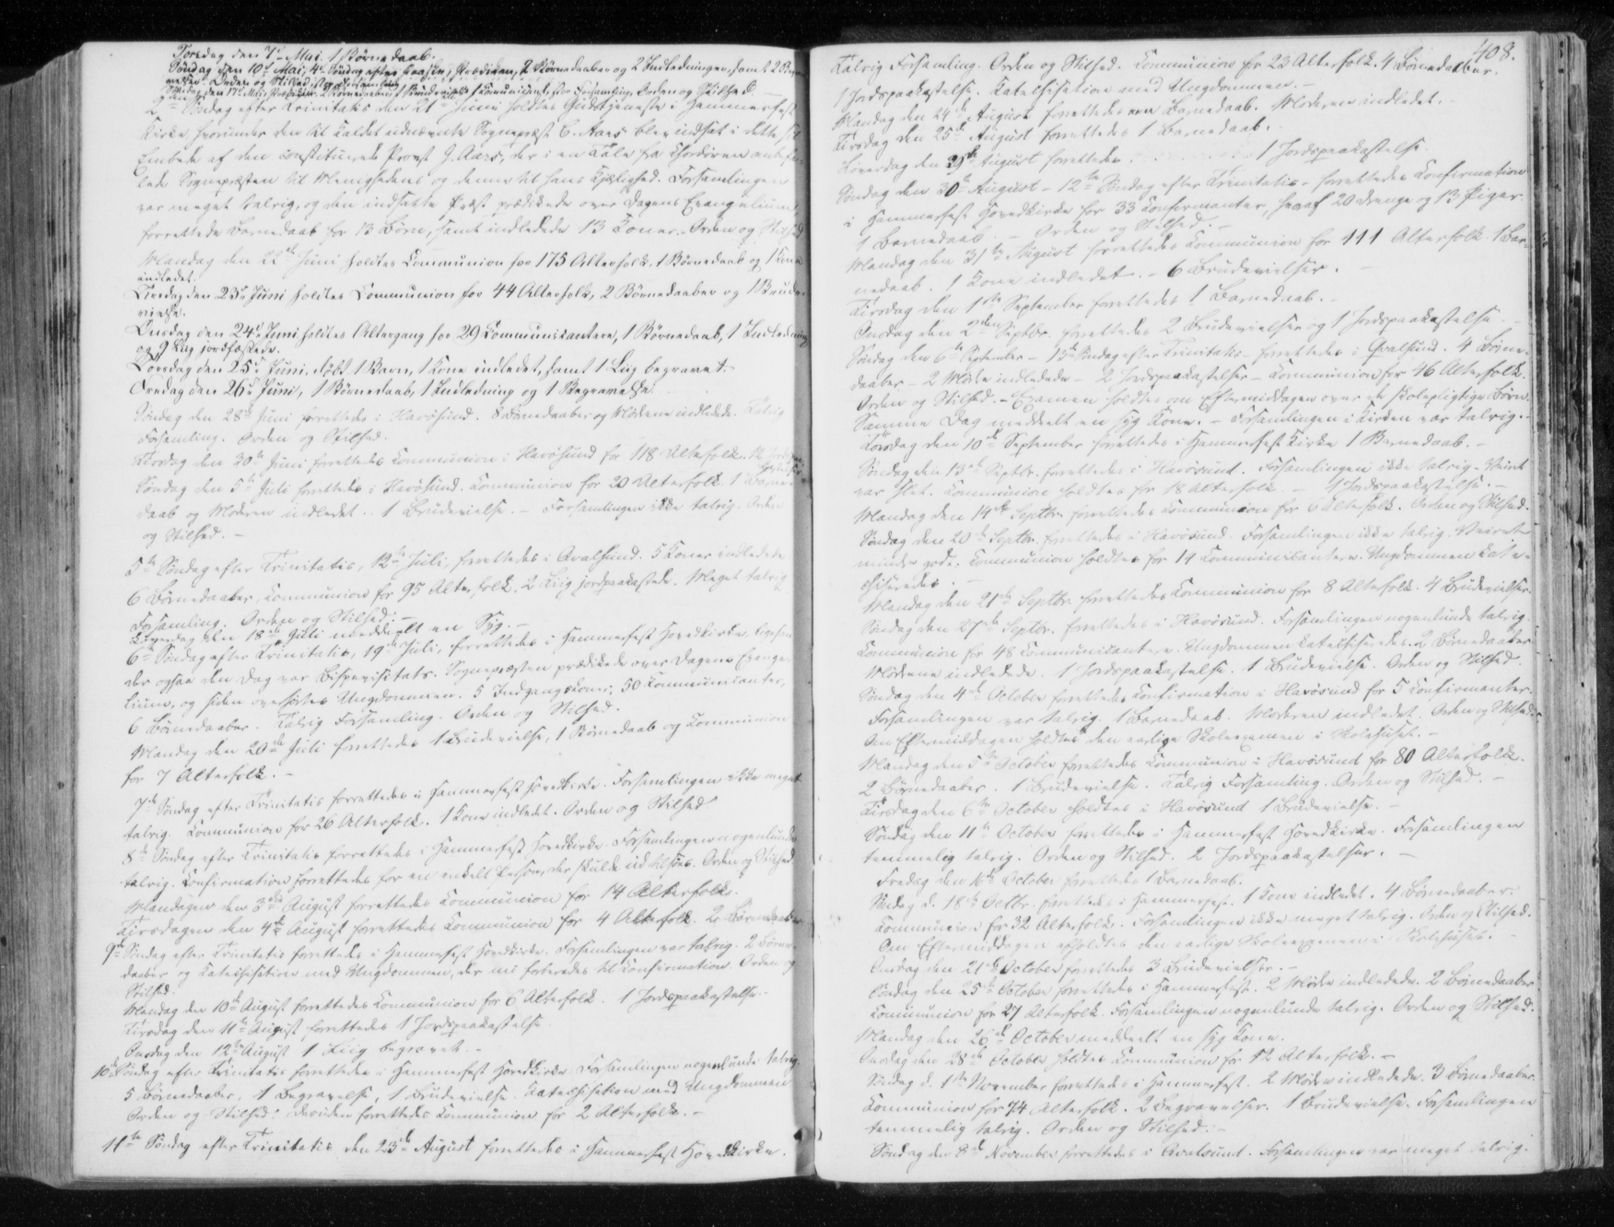 Torsdag den 7de Mai 1 Börnedaab.
Söndag den 10de Mai, 4de Söndag efter Paaske, Prædiken, 2 Börnedaaber og 2 Indledninger, samt 2
Orden og Stilhed.
Söndag den 17de Mai, Prædiken, Orden og Stilhed.
Söndag efter Trinitatis den 21de Juni holdtes Gudstjeneste i Hammerfest
Kirke, hvorunder den til Kaldet udnævnte Sognepræst C. Aars blev indsat i dette sit
Embede af den constituerede Provst J. Aars, der i en Tale fra Chordøren anbefa-
lede Sognepræsten til Menighedens og denne til hans Kjærlighed. Forsamlingen
var meget talrig, og den indsatte Præst prædikede over Dagens Evangelium,
forrettede Barnedaab for 13 Börn, samt indledede 13 Koner. Orden og Stilhed
Mandag den 22de Juni holdtes Communion for 175 Alterfolk, 1 Börnedaab og 1 Kone
indledet.
Tirsdag den 23de Juni holdtes Communion for 44 Alterfolk, 2 Börnedaaber og 1 Brude-
vielse.
Onsdag den 24de Juni holdtes Altergang for 29 Communicantere, 1 Börnedaab, 1 Indledning
og 9 Liig jordfæstede.
Torsdag den 25de Juni, döbt 1 Barn, 1 Kone indledet, samt 1 Liig begravet.
Fredag den 26de Juni, 1 Börnedaab, 1 Indledning og 1 Begravelse.
Söndag den 28de Juni forrettedes i Havösund. 8 Börnedaaber og Mödrene indledede. Talrig
Forsamling. Orden og Stilhed.
Tirsdag den 30te Juni forrettedes Communion i Havösund for 118 Alterfolk.
Söndag den 5te Juli forrettedes i Havösund. Communion for 20 Alterfolk. 1 Barne-
daab og Moderen indledet. 1 Brudevielse. - Forsamlingen ikke talrig. Orden
og Stilhed. -
5te Söndag efter Trinitatis, 12te Juli, forrettedes i Qvalsund. 5 Koner indledede
6 Börnedaaber, Communion for 95 Alterfolk, 2 Liig jordpaakastede. Meget talrig
Forsamling. Orden og Stilhed. -
Löverdag den 18de Juli meddeelt en Syg. -
6te Söndag efter Trinitatis, 19de Juli, forrettedes i Hammerfest Hovedkirke,
der ogsaa den Dag var Bispevisitats. Sognepræsten prædikede over Dagens Evange-
lium, og siden Ungdommen. 5 Indgangskoner, 50 Communicanter,
6 Börnedaaber. Talrig Forsamling. Orden og Stilhed.
Mandag den 20de Juli forrettedes 1 Brudevielse, 1 Börnedaab og Communion
for 7 Alterfolk. -
7de Söndag efter Trinitatis forrettedes i Hammerfest Hovedkirke. Forsamlingen ikke meget
talrig. Communion for 26 Alterfolk. 1 Kone indledet. Orden og Stilhed
8de Söndag efter Trinitatis forrettedes i Hammerfest Hovedkirke. Forsamlingen nogenlunde
talrig. Confirmation forrettedes for en enkelt Person, der skulde Orden og Stilhed
Mandagen den 3die August forrettedes Communion for 14 Alterfolk.
Tirsdagen den 4de August forrettedes Communion for 4 Alterfolk. 2 Börnedaaber
9de Söndag efter Trinitatis forrettedes i Hammerfest Hovedkirke. Forsamlingen var talrig. 2 Börne-
daaber og Katechisation med Ungdommen, der nu forberedes til Confirmation. Orden og
Stilhed.
Mandag den 10de August forrettedes Communion for 6 Alterfolk. 1 Jordspaakastelse.
Tirsdag den 11te August forrettedes 1 Jordspaakastelse.
Onsdag den 12te August 1 Liig begravet. -
10de Söndag efter Trinitatis forrettedes i Hammerfest Hovedkirke. Forsamlingen nogenlunde talrig.
5 Börnedaaber, 1 Begravelse, 1 Brudevielse. Katechisation med Ungdommen
Orden og Stilhed. forrettedes Communion for 2 Alterfolk. -
11te Söndag efter Trinitatis den 23de August forrettedes i Hammerfest Hovedkirke.
408.
Talrig Forsamling. Orden og Stilhed. Communion for 23 Alterfolk. 4 Börnedaaber.
1 Jordspaakastelse. Katechisation med Ungdommen. -
Mandag den 24de August forrettedes een Barnedaab. Moderen indledet. -
Tirsdag den 25de August forrettedes 1 Barnedaab.
Löverdag den 29de August forrettedes 1 Jordspaakastelse.
Söndag den 30te August - 12te Söndag efter Trinitatis - forrettedes Confirmation
i Hammerfest Hovedkirke for 33 Confirmanter, hvoraf 20 Drenge og 13 Piger.
1 Barnedaab. - Orden og Stilhed. -
Mandag den 31te August forrettedes Communion for 111 Alterfolk. 1 Bar-
nedaab. 1 Kone indledet. - 6 Brudevielser. -
Tirsdag den 1ste September forrettedes 1 Barnedaab. -
Onsdag den 2den Septbr. forrettedes 2 Brudevielser og 1 Jordspaakastelse. -
Söndag den 6te September - 13de Söndag efter Trinitatis - forrettedes i Qvalsund. 4 Börne-
daaber - 2 Mödre indledede - 2 Jordspaakastelser - Communion for 46 Alterfolk.
Orden og Stilhed. - Examen holdtes om Eftermiddagen over de skolepligtige Börn.
Samme Dag meddeelt en syg Kone. - Forsamlingen i Kirken var talrig. -
Torsdag den 10de September forrettedes i Hammerfest Kirke 1 Barnedaab. -
Söndag den 13de Septbr. forrettedes i Havösund. Forsamlingen ikke talrig. Veiret
var slet. Communion holdtes for 18 Alterfolk. - 1 Jordspaakastelse. -
Mandag den 14de Septbr. forrettedes Communion for 6 Alterfolk. Orden og Stilhed.
Söndag den 20de Septbr. forrettedes i Havösund. Forsamlingen ikke talrig. Veiret
mindre godt. Communion holdtes for 14 Communicanter. Ungdommen kate-
chiseredes. -
Mandag den 21de Septbr. forrettedes Communion for 8 Alterfolk. 4 Brudevielser.
Söndag den 27de Septbr. forrettedes i Havösund. Forsamlingen nogenlunde talrig.
Communion for 48 Communicanter. Ungdommen katechiseredes. 2 Börnedaaber
Mödrene indledede. 1 Jordspaakastelse. 1 Brudevielse. Orden og Stilhed.
Söndag den 4de October forrettedes Confirmation i Havösund for 5 Confirmanter.
Forsamlingen var talrig. 1 Barnedaab. Moderen indledet. Orden og Stilhed.
Om Eftermiddagen holdtes den aarlige Skoleexamen i Skolehuset. -
Mandag den 5te October forrettedes Communion i Havösund for 80 Alterfolk.
2 Börnedaaber. 1 Brudevielse. Talrig Forsamling. Orden og Stilhed. -
Tirsdagen den 6te October holdtes i Havösund 1 Brudevielse. -
Söndag den 11te October forrettedes i Hammerfest Hovedkirke. Forsamlingen
temmelig talrig. Orden og Stilhed. 2 Jordspaakastelser. -
Fredag den 16de October forrettedes 1 Barnedaab.
Söndag d. 18de Octbr. forrettedes i Hammerfest. 1 Kone indledet. 4 Börnedaaber.
Communion for 32 Alterfolk. Forsamlingen ikke meget talrig. Orden og Stilhed.
Om Eftermiddagen afholdtes den aarlige Skoleexamen i Skolehuset. -
Onsdag den 21de October forrettedes 3 Brudevielser. -
Söndag den 25de October forrettedes i Hammerfest. 2 Mödre indledede. 2 Börnedaaber
Communion for 27 Alterfolk. Forsamlingen nogenlunde talrig. Orden og Stilhed.
Mandag den 26de October meddeelt en syg Kone.
Onsdag den 28de October holdtes Communion for 12 Alterfolk. -
Söndag d. 1ste November forrettedes i Hammerfest. 2 Mödre indledede. 3 Börnedaaber.
Communion for 74 Alterfolk. 2 Begravelser. 1 Brudevielse. Forsamlingen
temmelig talrig. Orden og Stilhed. -
Söndag den 8de November forrettedes i Qvalsund. Forsamlingen var meget talrig.